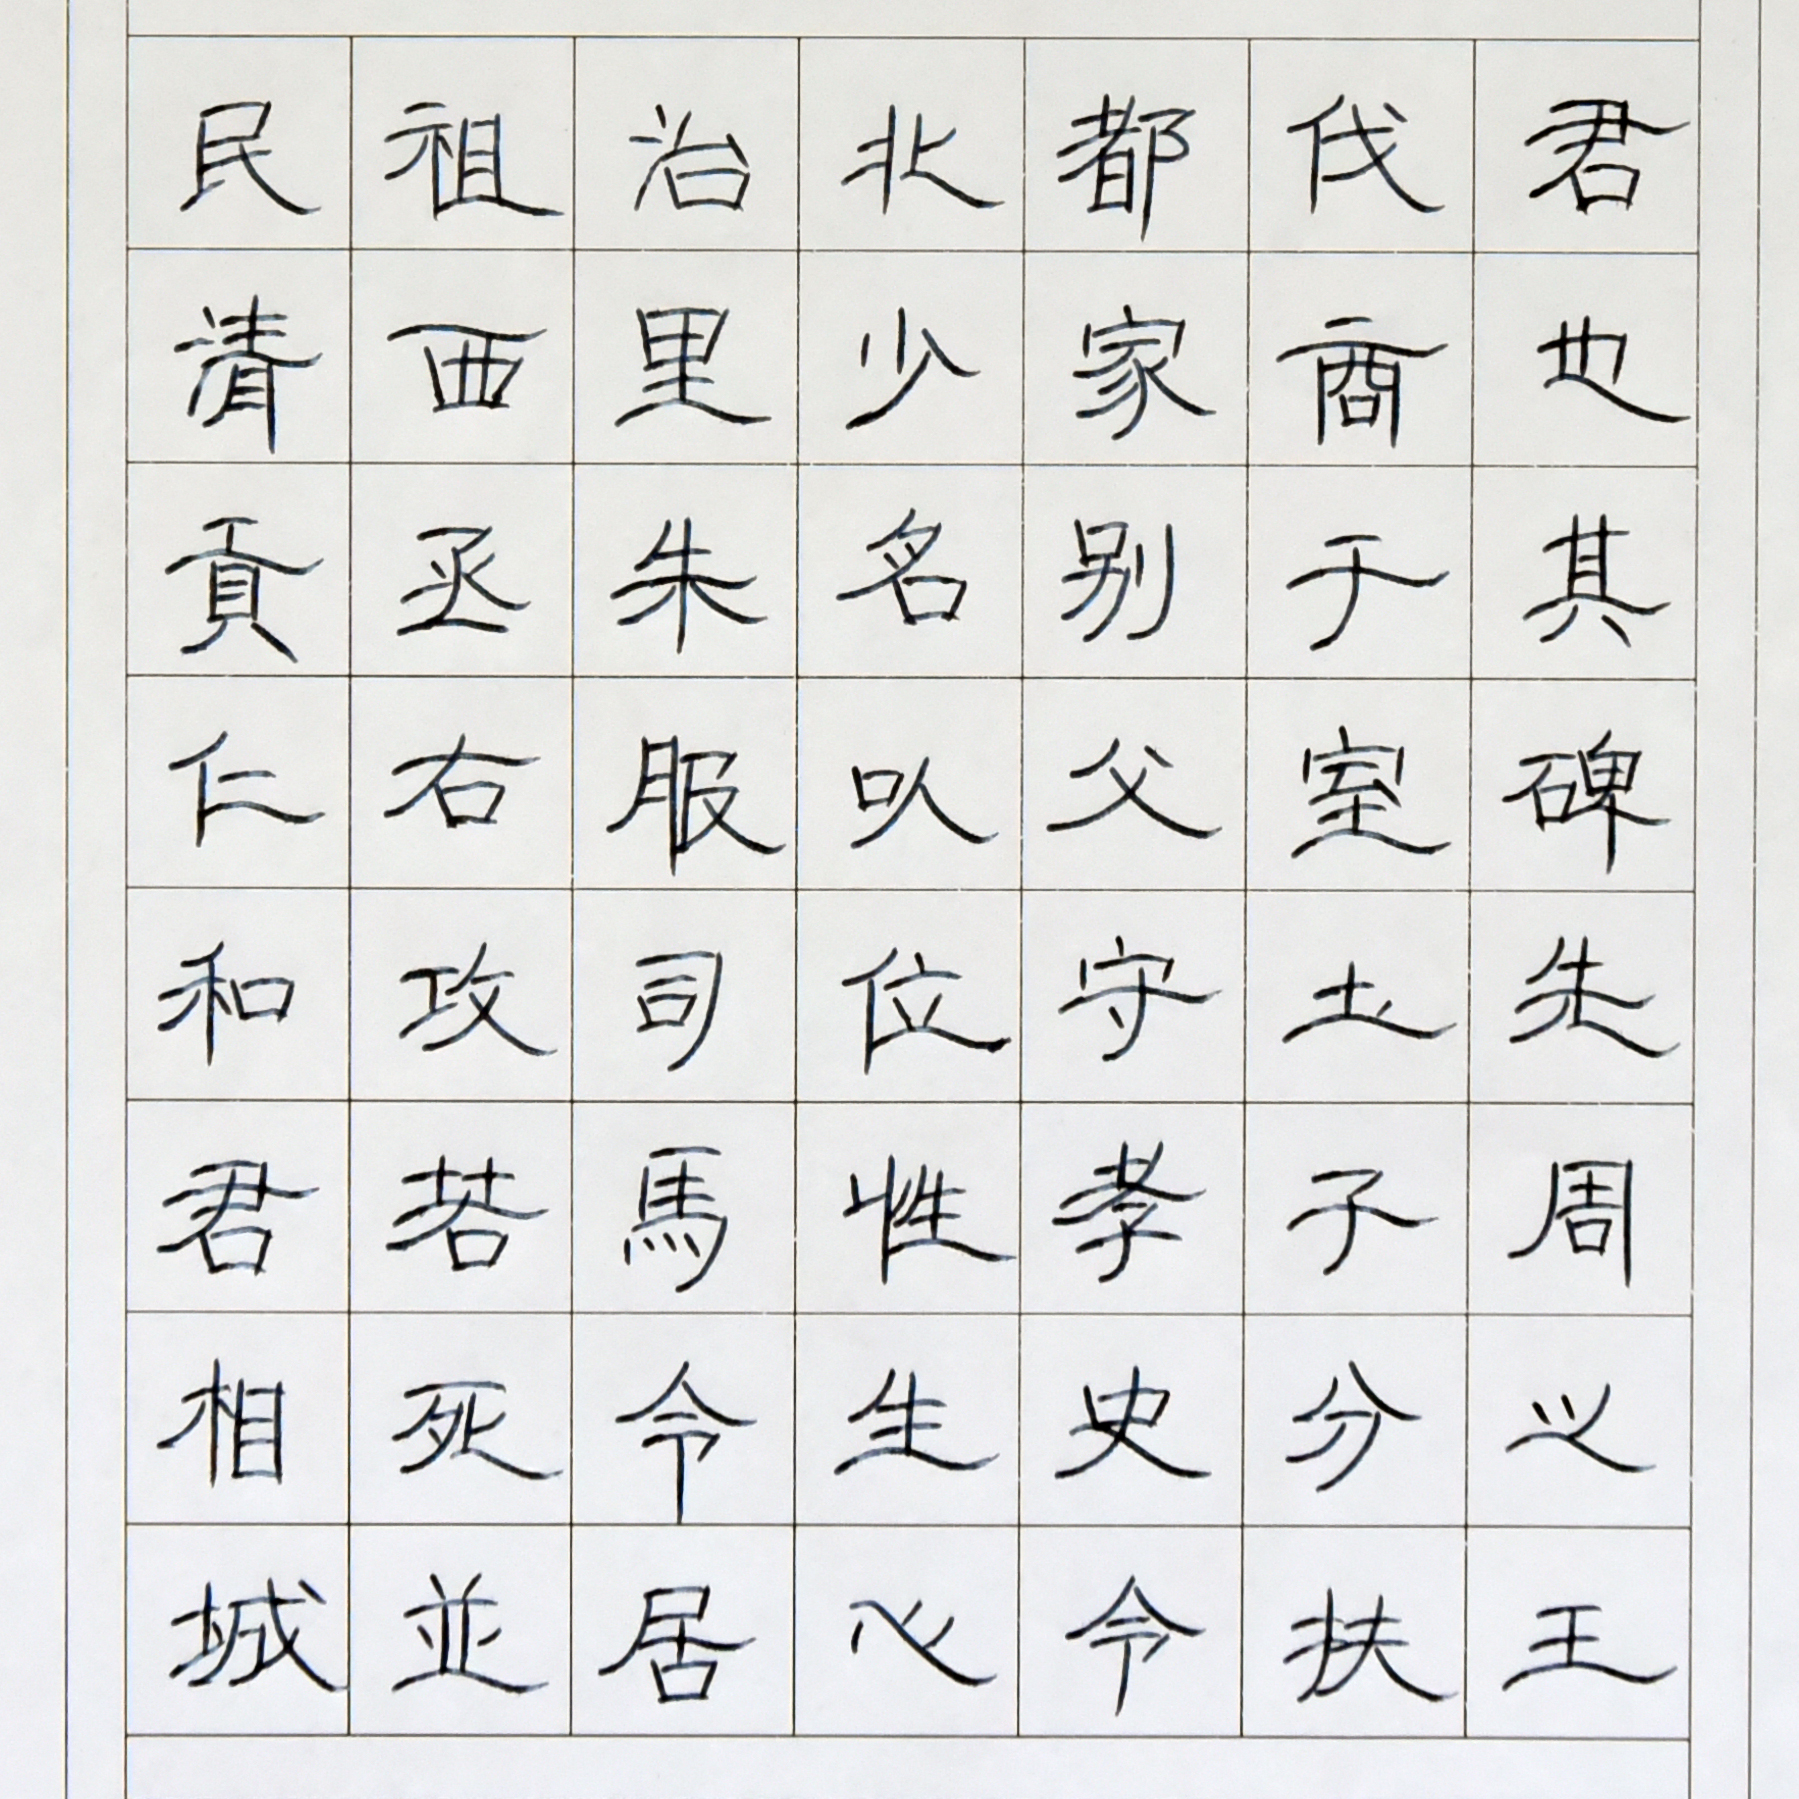 君也其碑先周之王
伐商于室圡子分扶
都家别父守孝史令
北少名㕥位性生心
治里朱服司馬令居
祖西丞右攻若死並
民清貢仁和君相城